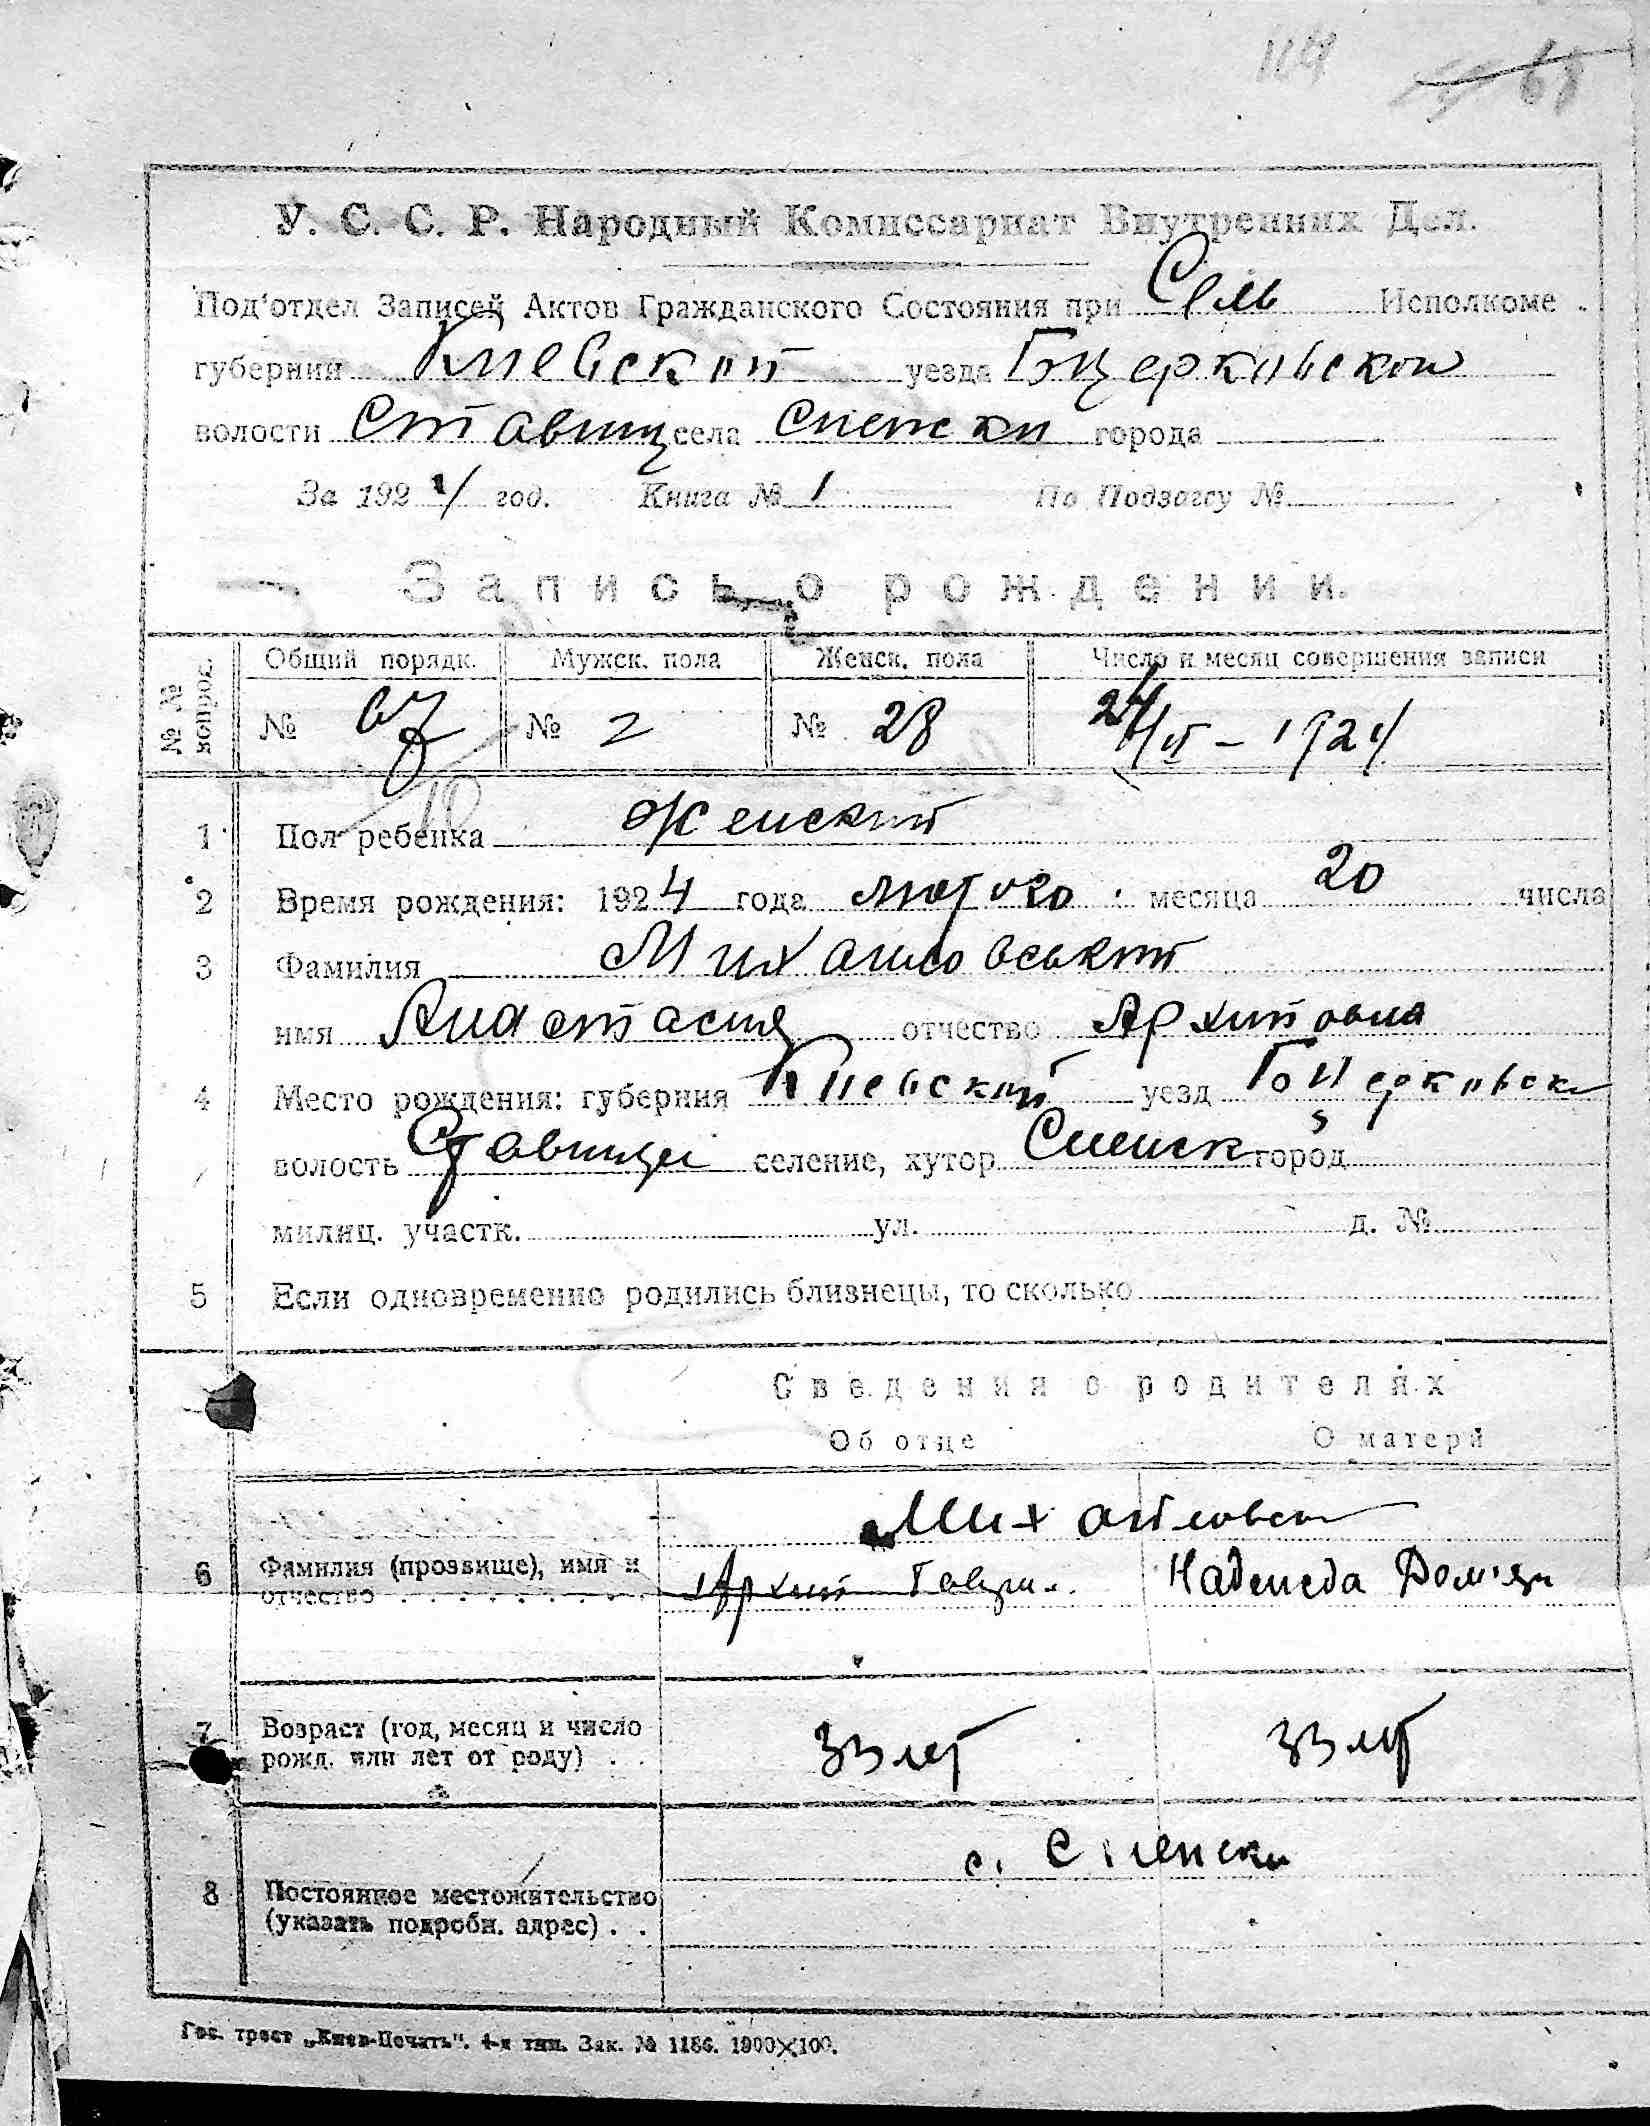 114
68
У. С. С. Р. Народный Комиссариат Внутренних Дел.
Под'отдел Записей Актов Гражданского Состояния при Сель Исполкоме
губернии Киевской уезда Бцерковской
волости Ставищ села города
За 1924 год. Книга № 1 По Подзагсу №
Запись о рождении.
№№ вопрос. Общий порядк. Мужск. пола Женск. пола Число и месяц совершения записи
№ № 2 № 28 24/II – 1924
1 Пол ребенка Женский
2 Время рождения: 1924 года лютого месяца 20 числа
3 Фамилия Михайловський
имя Анастасия отчество Архиповна
4 Место рождения: губерния Киевской уезд Бцерковск
волость Ставищи селение, хутор город
милиц. участк. ул. д. №
5 Если одновременно родились близнецы, то сколько
Сведения о родителях
Об отце О матери
Михайловск
6 Фамилия (прозвище), имя и отчество Архип Гаври. Надежда Дом'ян
7 Возраст (год, месяц и число рожд. или лет от роду) 33 лет 33 лет
с.
8 Постоянное местожительство (указать подробн. адрес)
Гос. трест „Киев-Печать". 4-я тип. Зак. № 1186. 1900×100.